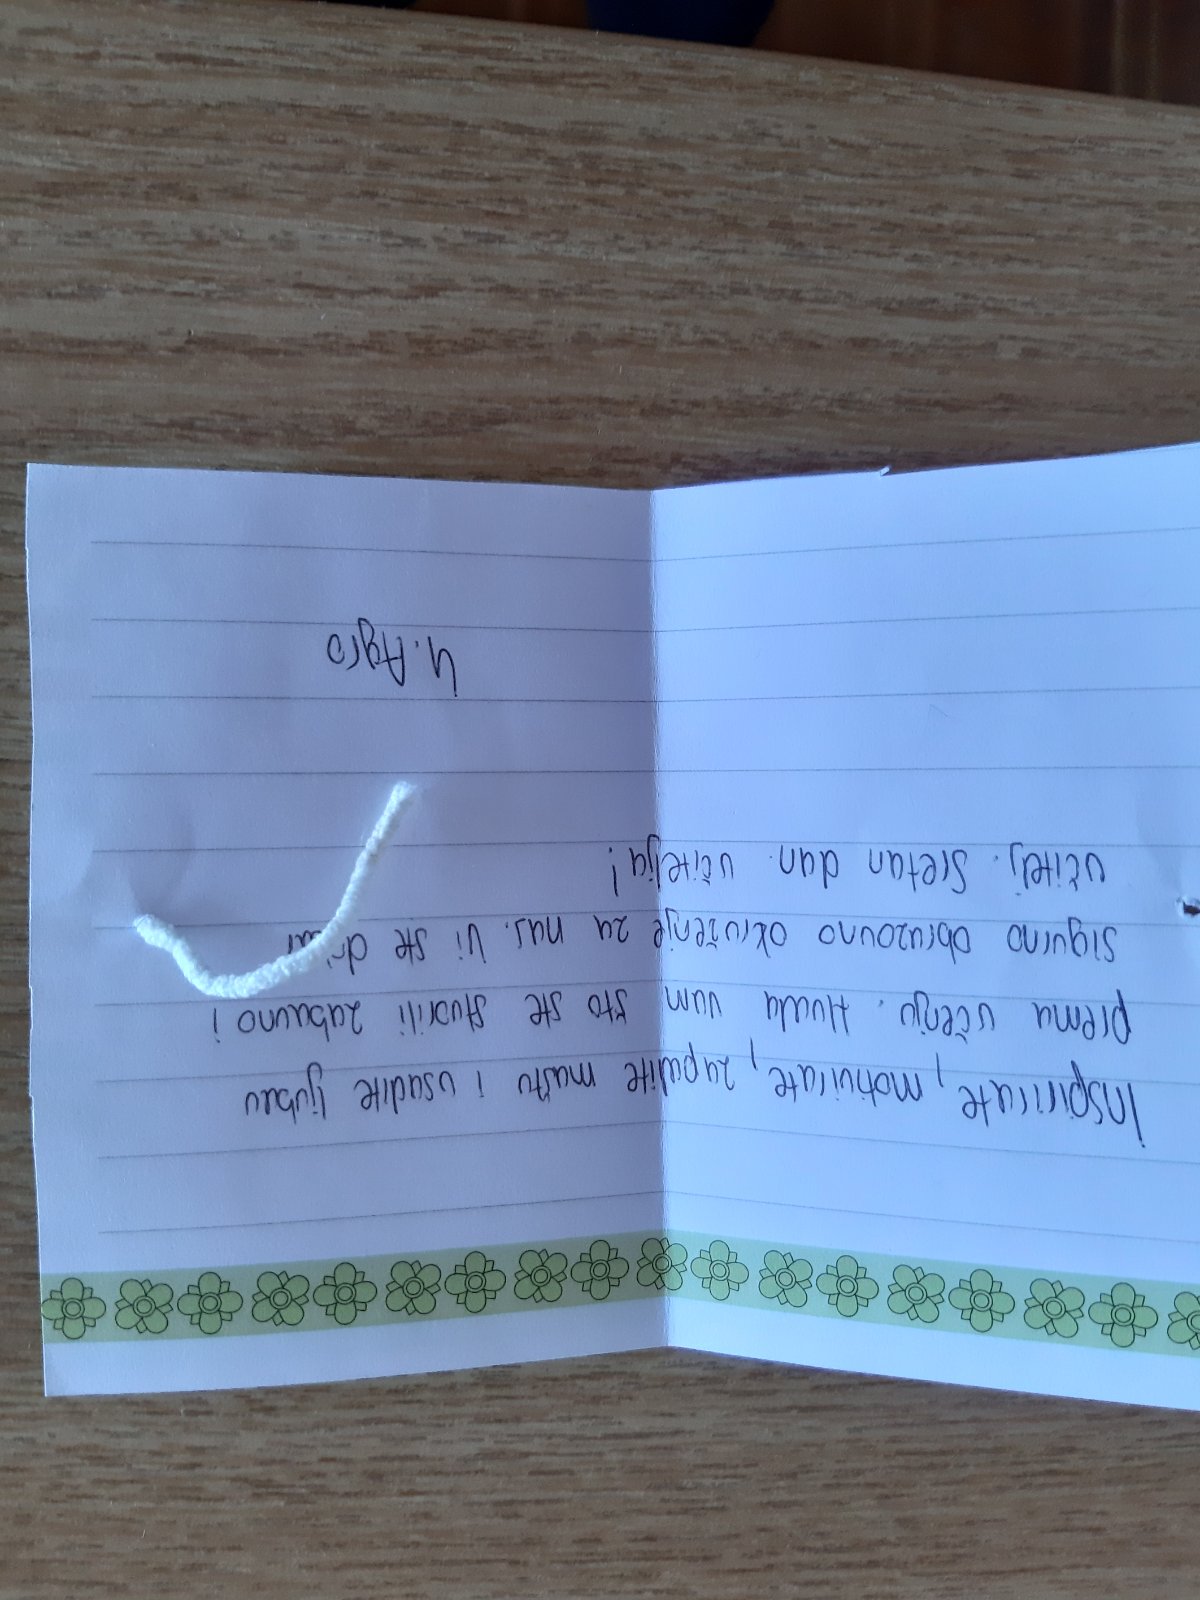 Inspirirate, motivirate, zapalite maštu i usadite ljubav
prema učenju. Hvala vam što ste stvorili zabavno i
sigurno obrazovno okruženje za nas. Vi ste
učitelj. Sretan dan učitelja!
4. Agro